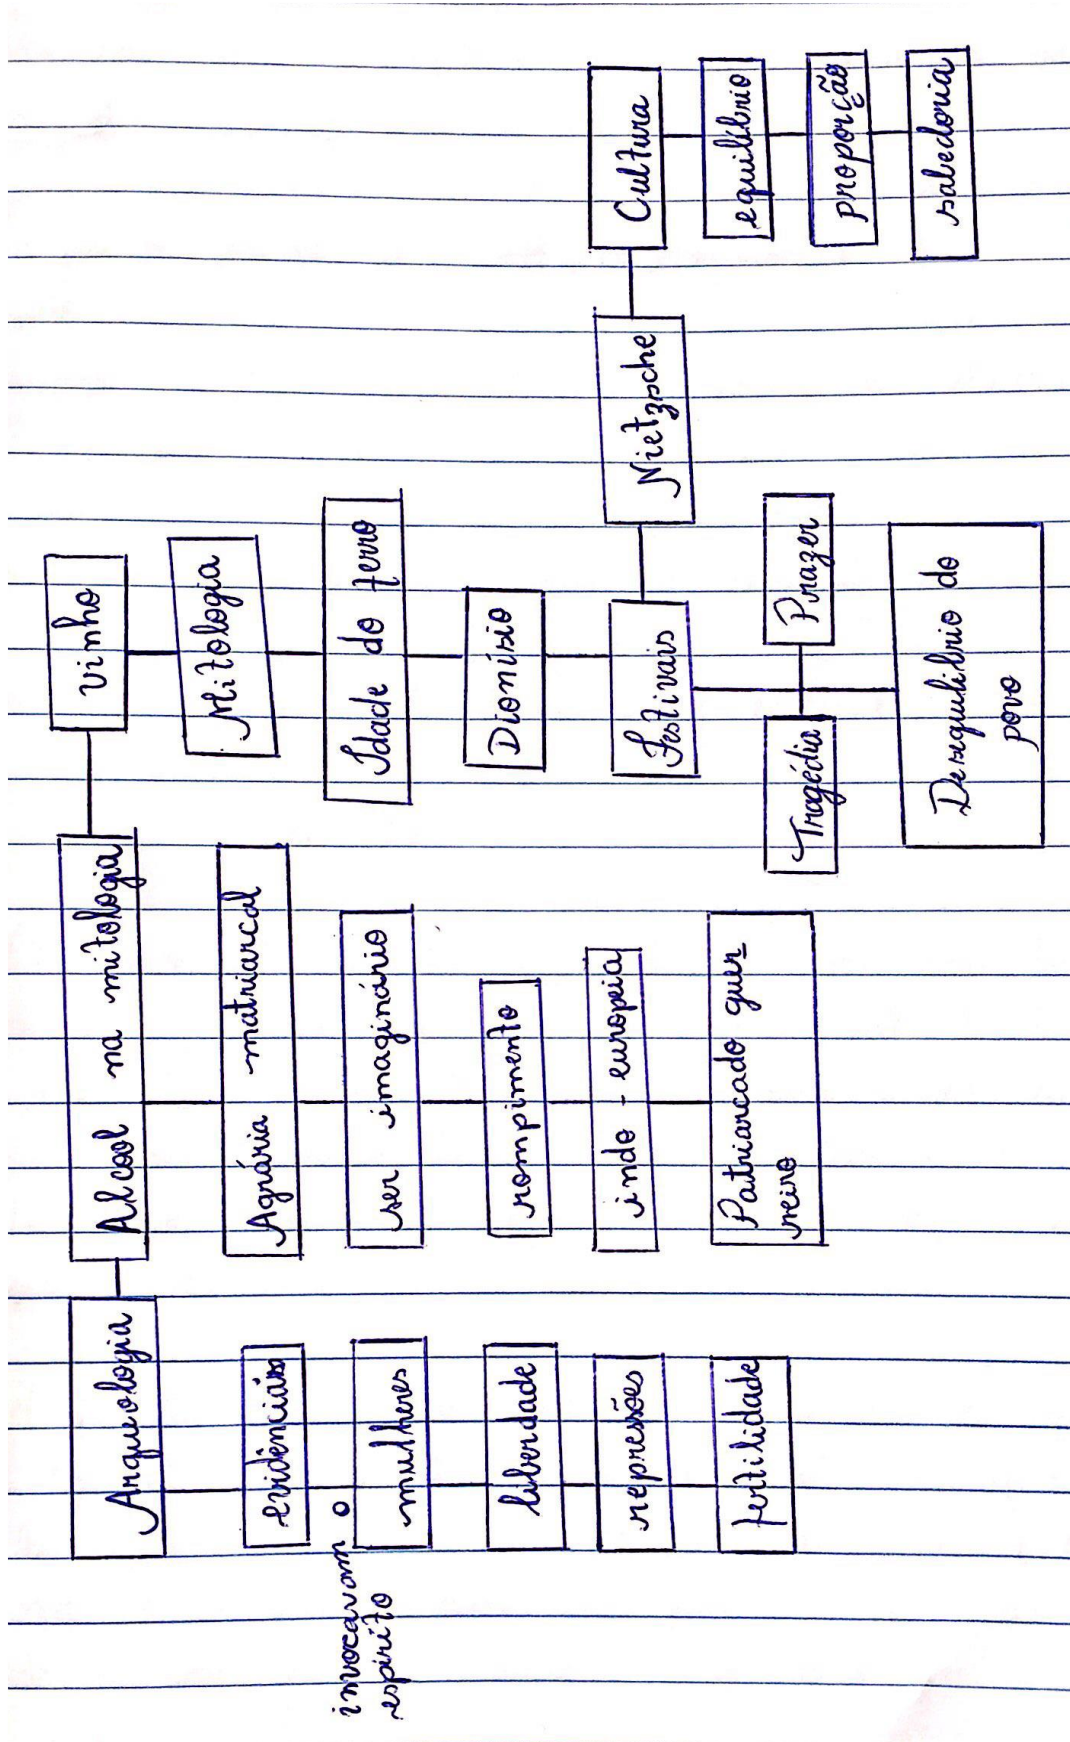 Arqueologia
evidências
invocavam o
espírito
mulheres
liberdade
repressões
fertilidade
Alcool na mitologia
Agrária matriarcal
ser imaginário
rompimento
indo-europeia
Patriarcado guer
reiro
Vinho
Mitologia
Idade do ferro
Dionísio
Festivais
Tragédia
Prazer
Desequilibrio do
povo
Nietzsche
Cultura
equilíbrio
proporção
sabedoria